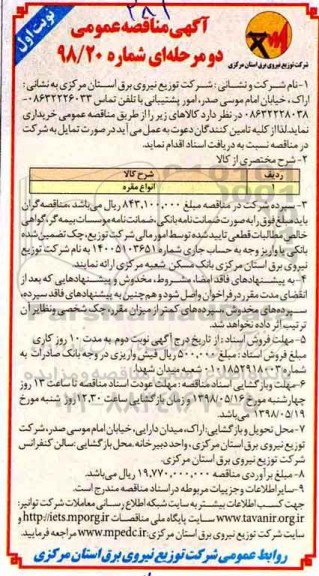 نوبت اول
آگهی مناقصه عمومی
دو مرحله‌ای شماره ۹۸/۲۰
شرکت توزیع نیروی برق استان مرکزی
۱-نام شرکت و نشانی: شرکت توزیع نیروی برق استان مرکزی به نشانی:
اراک، خیابان امام موسی صدر، امور پشتیبانی با تلفن تماس ۰۸۶۳۲۲۲۶۰۳۳-
۰۸۶۳۲۲۲۸۰۳۸ در نظر دارد کالاهای زیر را از طریق مناقصه عمومی خریداری
نماید. لذا از کلیه تامین کنندگان دعوت به عمل می آید در صورت تمایل به شرکت
در مناقصه نسبت به دریافت اسناد اقدام نمایند.
۲- شرح مختصری از کالا
ردیف شرح کالا
۱ انواع مقره
۳-سپرده شرکت در مناقصه مبلغ ۸۴۳,۱۰۰,۰۰۰ ریال می باشد. مناقصه گران
باید مبلغ فوق را به صورت ضمانت نامه بانکی، ضمانت نامه موسسات بیمه گر، گواهی
خالص مطالبات قطعی تایید شده توسط امور مالی شرکت توزیع، چک تضمین شده
بانکی یا واریز وجه به حساب جاری شماره ۱۴۰۰۵۱۰۳۶۵۱ به نام شرکت توزیع
نیروی برق استان مرکزی بانک مسکن شعبه مرکزی ارائه نمایند.
۴- به پیشنهادهای فاقد امضا، مشروط، مخدوش و پیشنهادهایی که بعد از
انقضای مدت مقرر در فراخوان واصل شود و هم چنین به پیشنهادهای فاقد سپرده،
سپرده‌های مخدوش، سپرده‌های کمتر از میزان مقرر، چک شخصی و نظایر آن
ترتیب اثر داده نخواهد شد.
۵- مهلت فروش اسناد: از تاریخ درج آگهی نوبت دوم به مدت ۱۰ روز کاری
مبلغ فروش اسناد: مبلغ ۵۰۰,۰۰۰ ریال فیش واریزی در وجه بانک صادرات به
شماره ۰۱۰۱۸۵۲۹۱۸۰۰۳ شعبه میدان شهدا.
۶-مهلت و بازگشایی اسناد مناقصه: مهلت عودت اسناد مناقصه تا ساعت ۱۳ روز
چهارشنبه مورخ ۱۳۹۸/۰۵/۱۶ و زمان بازگشایی ساعت ۱۲:۳۰ روز شنبه مورخ
۱۳۹۸/۰۵/۱۹ می باشد.
۷-محل تحویل و بازگشایی: اراک، میدان دارایی، خیابان امام موسی صدر، شرکت
توزیع نیروی برق استان مرکزی، واحد دبیرخانه. محل بازگشایی: سالن کنفرانس
شرکت توزیع نیروی برق استان مرکزی.
۸- مبلغ برآوردی مناقصه ۱۹,۷۷۰,۰۰۰,۰۰۰ ریال می باشد.
۹-سایر اطلاعات و جزییات مربوطه در اسناد مناقصه مندرج است.
جهت کسب اطلاعات بیشتر به سایت شبکه اطلاع رسانی معاملات شرکت توانیر:
www.tavanir.org.ir سایت پایگاه ملی مناقصات http://iets.mporg.ir و
سایت شرکت توزیع نیروی برق استان مرکزی www.mpedc.ir مراجعه فرمایید.
روابط عمومی شرکت توزیع نیروی برق استان مرکزی